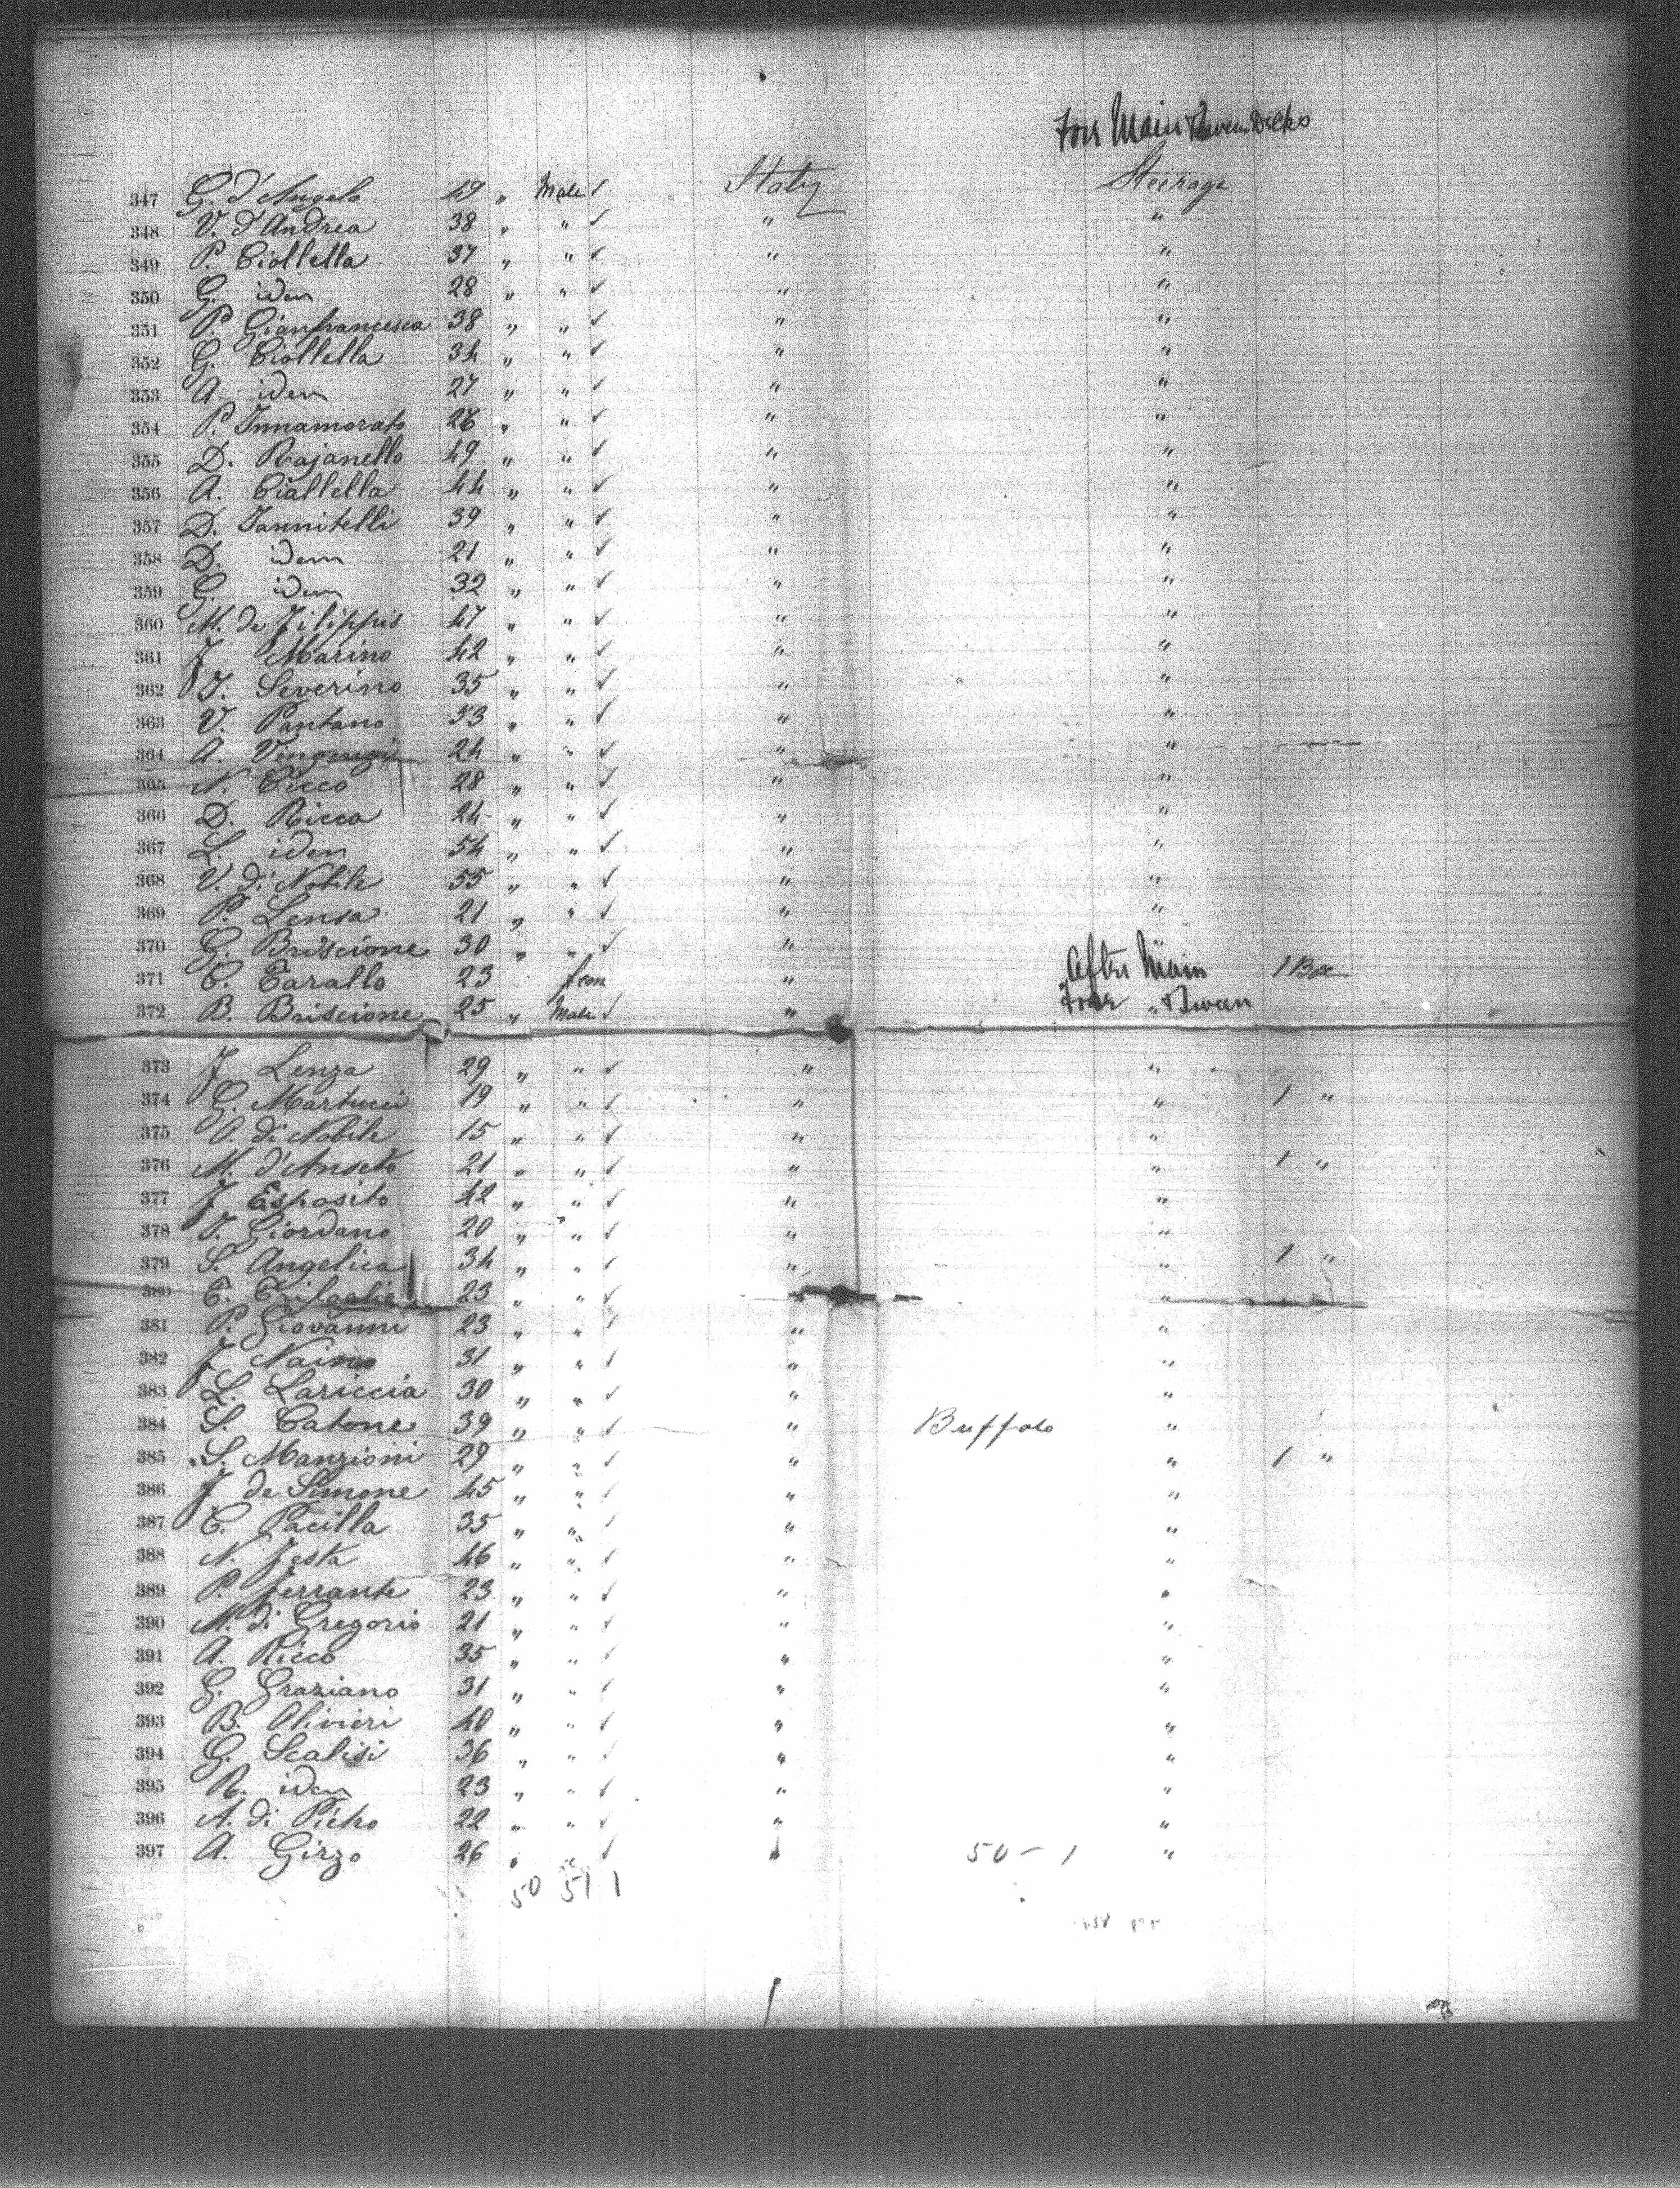 Fore Main & Tween Decks
347 G. d'Angelo 49 " Male ✓ Italy Steerage
348 V. d'Andrea 38 " " ✓ " "
349 P. Ciollella 37 " " ✓ " "
350 G. idem 28 " " ✓ " "
351 P. Gianfrancesca 38 " " ✓ " "
352 G. Ciollella 34 " " ✓ " "
353 A. idem 27 " " ✓ " "
354 P. Innamorato 26 " " ✓ " "
355 D. Rajanello 49 " " ✓ " "
356 A. Ciallella 44 " " ✓ " "
357 D. Iannitelli 39 " " ✓ " "
358 D. idem 21 " " ✓ " "
359 G. idem 32 " " ✓ " "
360 M. de Filippis 47 " " ✓ " "
361 F Marino 42 " " ✓ " "
362 T. Severino 35 " " ✓ " "
363 V. Pantano 33 " " ✓ " "
364 A. 24 " " ✓ " "
365 N. Cicco 28 " " ✓ " "
366 D. Ricca 24 " " ✓ " "
367 L. idem 54 " " ✓ " "
368 V. di Nobile 55 " " ✓ " "
369 P. Lensa 21 " " ✓ " "
370 G. Briscione 30 " " ✓ " "
371 C. Tarallo 23 fem " After Main 1 Box
372 B. Briscione 25 " Male ✓ " Fore " & Tween
373 F Lenza 29 " " ✓ " "
374 G. Martucci 19 " " ✓ " " 1 "
375 P. di Nobile 15 " " ✓ " "
376 M. d'Anseto 21 " " ✓ " " 1 "
377 F Esposito 42 " " ✓ " "
378 T. Giordano 20 " " ✓ " "
379 S. Angelica 34 " " ✓ " " 1 "
380 C. 23 " " ✓ " "
381 P. Giovanni 23 " " ✓ " "
382 F Naimo 31 " " ✓ " "
383 L. Lariccia 30 " " ✓ " "
384 S. Catone 39 " " ✓ " Buffalo "
385 S. Manzioni 29 " " ✓ " " 1 "
386 F de Simone 45 " " ✓ " "
387 C. Pacilla 35 " " ✓ " "
388 N. Festa 46 " " ✓ " "
389 P. Ferrante 23 " " ✓ " "
390 M. di Gregorio 21 " " ✓ " "
391 A. Ricco 35 " " ✓ " "
392 G. Graziano 31 " " ✓ " "
393 B. Olivieri 40 " " ✓ " "
394 G. Scalisi 36 " " ✓ " "
395 R. idem 23 " " ✓ " "
396 A. di Pietro 22 " " ✓ " "
397 A. Girzo 26 " " ✓ " 50 - 1 "
50 51 1